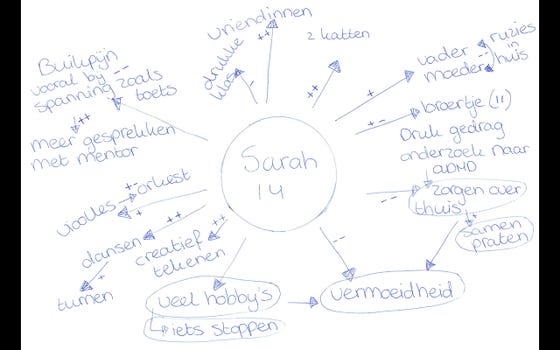 vriendinnen
++
drukke
klas
-
2 katten
++
vader
moeder
--
ruzies
in
huis
+
broertje (11)
+-
Druk gedrag
onderzoek naar
ADHD
zorgen over
thuis
--
++
samen
praten
Buikpijn
vooral bij --
spanning zoals
toets
++
meer gesprekken
met mentor
Sarah
14
+-
orkest
vioolles
+
++
dansen
+
turnen
++
creatief
tekenen
veel hobby's
iets stoppen
--
vermoeidheid